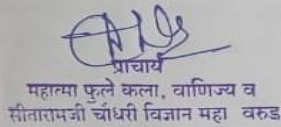 प्राचार्य
महात्मा फुले कला, वाणिज्य व
सीतारामजी चौधरी विज्ञान महा वरुड